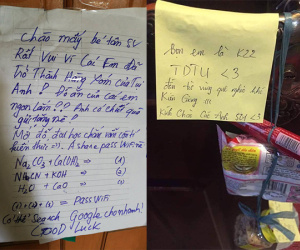 Chào mấy bé tân SV
Rất Vui Vì Các Em đã
Trở Thành Hàng Xóm Của Tụi
Anh! Đồ ăn của các em
ngon lắm!! Anh có chút quà
gửi tặng nè!
Mở đố đại học chút vấn đề
kiến thức =)). A share pass Wifi nè
Na2CO3 + Ca(OH)2 => (1)
NH4CN + KOH => (2)
H2O + CaO => (3)
(1) + (2) + (3) = PASS WIFI
Có thể Search Google cho nhanh!
GOOD Luck
bọn em là K22
TDTU <3
đến từ vùng quê nghèo khó
Kiên Giang !!!
Kính Chào Các Anh <3